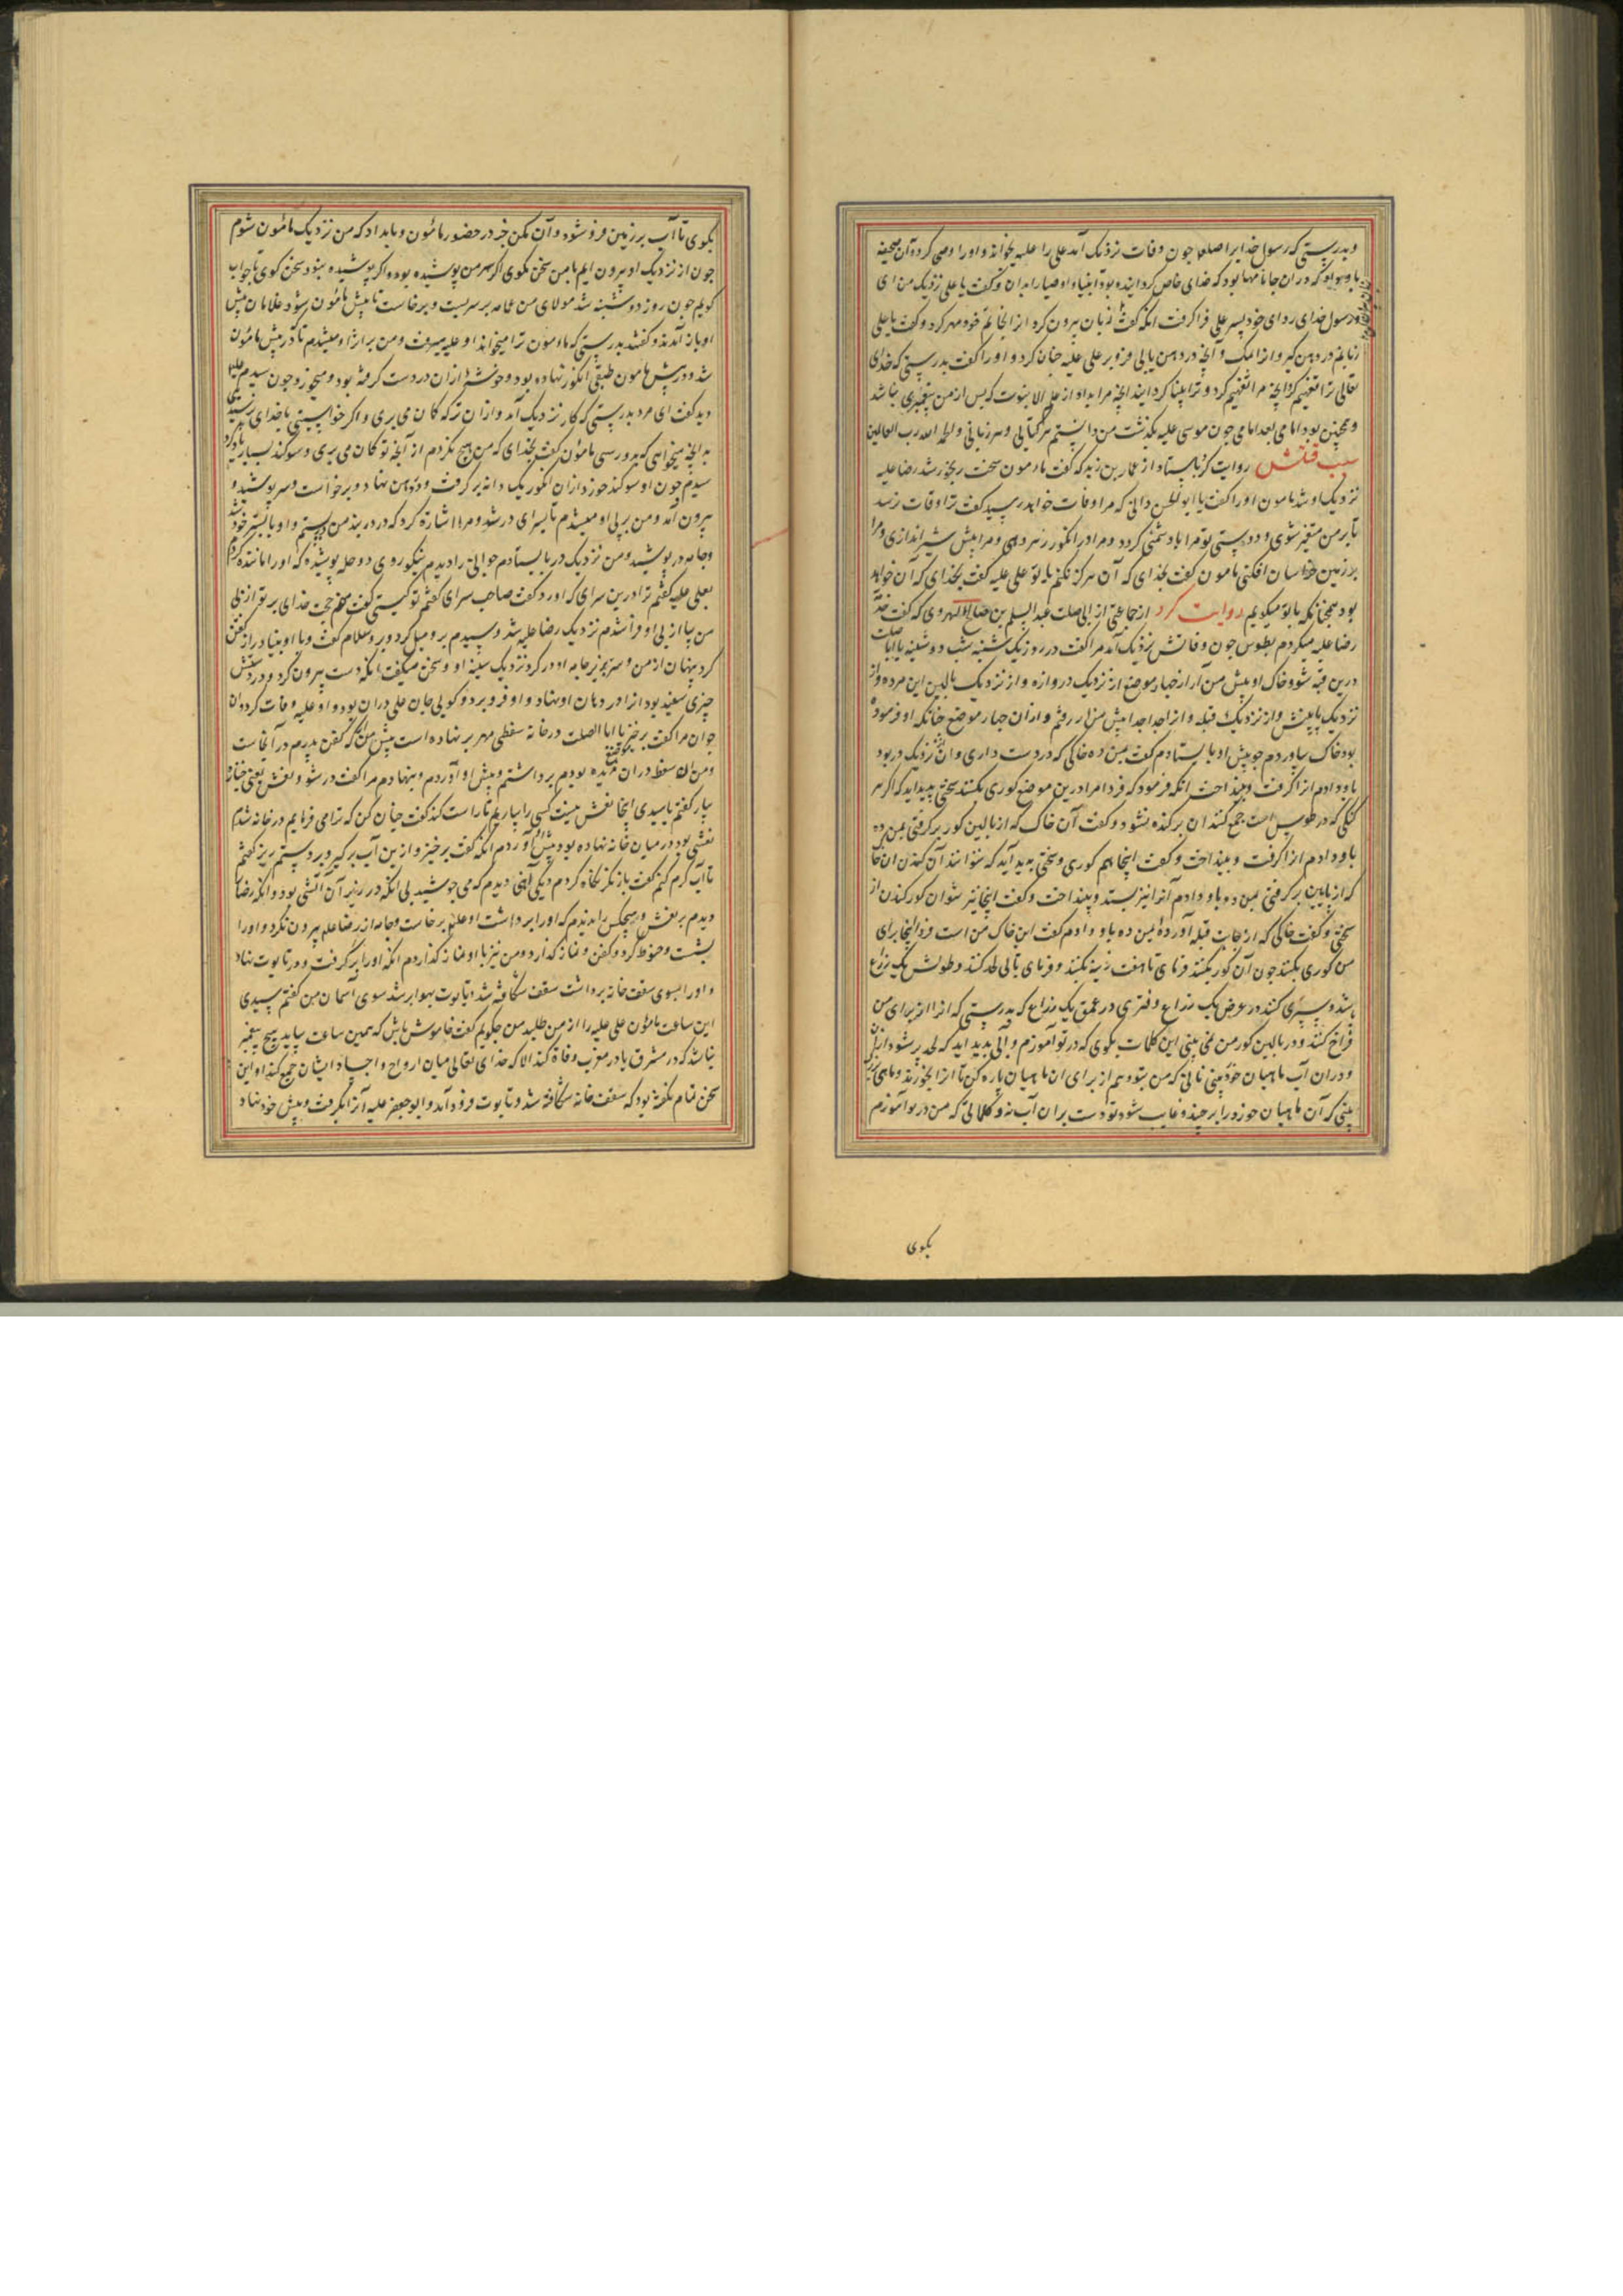 وبدرستی که رسول خدایرا صلعم چون وفات نزدیک آمد علی را علیه بخواند و اورا وصی کرد و آن صحیفه
باو بود که در آن نامها بود که خدای خاص کردانیده بود انبیا و اوصیا را بدان و کفت یا علی نزدیک من ای
و رسول خدای ردای خود بسر علی فرا کرفت انکه کفت زبان بیرون کرد از انجا بخود مهر کرد و کفت یا علی
زبانم در دهن کیر و از امک و آنچه در دهن یابی فرو بر علی علیه چنان کرد و اورا کفت بدرستی که خدای
تعالی ترا تفهیم کرد آنچه مرا تفهیم کرد و ترا بینا کردانید آنچه مرا بداد از علم الا نبوت که پس از من پیغمبری نباشد
و همچنین بود امامی بعد امامی چون موسی علیه بکذشت من دانستم هر کتابی و هر زبانی والحمد الله رب العالمین
سبب قتلش روایت کرد باسناد از عمار بن زید که کفت مامون سخت رنجور شد رضا علیه
نزدیک او شد مامون اورا کفت یا ابو الحسن دانی که مرا وفات خواهد رسید کفت ترا وفات نرسد
تا بر من متغیر شوی و دوستی تو مرا بادشمنی کردد و مرا در انکور زهر دهی و مرا پیش شیر اندازی و مرا
بزمین خراسان افکنی مامون کفت بخدای که آن هرکز نکنم با تو علی علیه کفت بخدای که آن خواهد
بود همچنانکه با تو میکویم روایت کرد از جماعتی از ابی صلت عبد السلم بن صالح الهروی که کفت خدمة
رضا علیه میکردم بطوس چون وفاتش نزدیک آمد مرا کفت در روز یک شنبه شب دوشنبه یا ابا صلت
درین قبه شو و خاک او پیش من آر از چهار موضع از نزدیک دروازه و از نزدیک بالین این مرده و از
نزدیک پایینش و از نزدیک قبله و از انجا جدا جدا پیش من آر رفتم و از آن چهار موضع چنانکه او فرموده
بود خاک بیاوردم چو پیش او بایستادم کفت بمن ده خاکی که در دست داری و آن نزدیک در بود
باو دادم از اکرفت و بینداخت انکه فرمود که فردا مرا درین موضع کوری بکنند سختی پدید آید که اکر هر
کلنکی که در طوس است جمع کنند آن برکنده نشود و کفت آن خاک که از بالین کور برکرفتی بمن ده
باو دادم از اکرفت و بینداخت و کفت اینجا هم کوری و سختی پدید آید که نتوانند آن کندن آن خاک
که از پایین برکرفتی بمن ده باو دادم آنرا نیز بستد و بینداخت و کفت اینجا نیز نتوان کور کندن از
سختی و کفت خاکی که از جانب قبله آورده بمن ده باو دادم کفت این خاک من است فردا اینجا برای
من کوری بکنند چون آن کور بکنند فرمای تا هفت زینه بکنند و فرمای تا لی لحد کنند و طولش یک ذراع
باشد و سپری کنند در عرض یک ذراع و فتری در عمق یک ذراع که بدرستی که انرا از برای من
فراخ کنند و در بالین کور من نمی بینی این کلمات بکوی که در تو آموزم و آبی پدید آید که لحد پر شود از آن
و در آن آب ماهیان خرد بینی نانی که من بتو دهم از برای ان ماهیان پاره کن تا انرا بخورند و ماهی بزرک
بینی که آن ماهیان خرد را برچیند و غایب شود تو دست بر آن آب نه و کلماتی که من در تو آموزم
بکوی
بکوی تا آب بر زمین فرو شود و آن مکن جز در حضور مامون و بامداد که من نزدیک مامون شوم
چون از نزدیک او بیرون ایم با من سخن مکوی اکر سر من پوشیده بود و اکر پوشیده نبود سخن کوی تا جواب
کویم چون روز دوشنبه شد مولای من عمامه بر سر بست و برخاست تا پیش مامون شود غلامان پیش
او باز آمدند و کفتند بدرستی که مامون ترا میخواند او علیه میرفت و من بر اثر او میشدم تا در پیش مامون
شد و در پیش مامون طبقی انکور نهاده بود و خوشه از ان در دست کرفته بود و میخورد چون سیدم علیه
دید کفت ای مرد بدرستی که کار نزدیک آمد و از آن ترکه کان می بری و اکر خواستی با خدای رسیدی
بدانچه میخواهی که برسی مامون کفت بخدای که من هیچ نکردم از آنچه تو کمان می بری و سوکند بسیار یاد کرد
سیدم چون او سوکند خورد از ان انکور یک دانه برکرفت و در دهن نهاد و برخواست و سر پوشید و
بیرون آمد و من بر پی او میشدم تا بسرای در شد و مرا اشارة کرد که در در بند من در ببستم و او با بستر خود شد
و جامه در پوشید و من نزدیک در بایستادم جوانی را دیدم نیکو روی دو حله پوشیده که اورا مانند کردم
بعلی علیه کفتم ترا درین سرای که آورد کفت صاحب سرای کفتم تو کیستی کفت منم حجت خدای بر تو از پی
من بیا از پی او فرا شدم نزدیک رضا علیه شد و سیدم برو میل کرد و برو سلام کفت و با او بنیاد راز کفتن
کرد پنهان از من و سر بزیر جامه او در کرد نزدیک سینه او و سخن میکفت انکه دست بیرون کرد و در دستش
چیزی سفید بود انرا در دهان او نهاد و او فرو برد و کویی جان علی در آن بود و او علیه وفات کرد و ان
جوان مرا کفت برخیز یا ابا الصلت در خانه سفطی مهر بر نهاده است پیش من ار که کفن پدرم در آنجاست
و من ان سفط در ان ندیده بودم برداشتم و پیش او آوردم و بنهادم مرا کفت در شو و نعش یعنی جنازه
بیار کفتم یا سیدی اینجا نعش نیست کسی را بیاریم تا راست کند کفت چنان کن که ترا می فرمایم در خانه شدم
نعشی بود در میان خانه نهاده بود پیش او آوردم انکه کفت برخیز و ازین آب برکیر و بر دستم ریز کفتم
تا آب کرم کنم کفت باز نکر نکاه کردم دیکی آهنی دیدم که می جوشید بی انکه در زیر آن آتشی بود و انکه رضا را
دیدم بر نعش و هیچکس را ندیدم که اورا برداشت او علیه برخاست و جامه از رضا علیه بیرون کرد و اورا
بشست و حنوط کرد و کفن و نماز کذارد و من نیز با او نماز کذاردم انکه اورا برکرفت و در تابوت نهاد
و اورا بسوی سقف خانه برداشت سقف شکافته شد و تابوت بهوا بر شد سوی آسمان من کفتم سیدی
این ساعت مامون علی علیه را از من طلبد من چکویم کفت خاموش باش که همین ساعت بیاید هیچ پیغمبر
نباشد که در مشرق یا در مغرب وفاة کند الا که خدای تعالی میان ارواح و اجساد ایشان جمع کند او این
سخن تمام نکفته بود که سقف خانه شکافته شد و تابوت فرود آمد و ابو جعفر علیه آنرا بکرفت و پیش خود نهاد